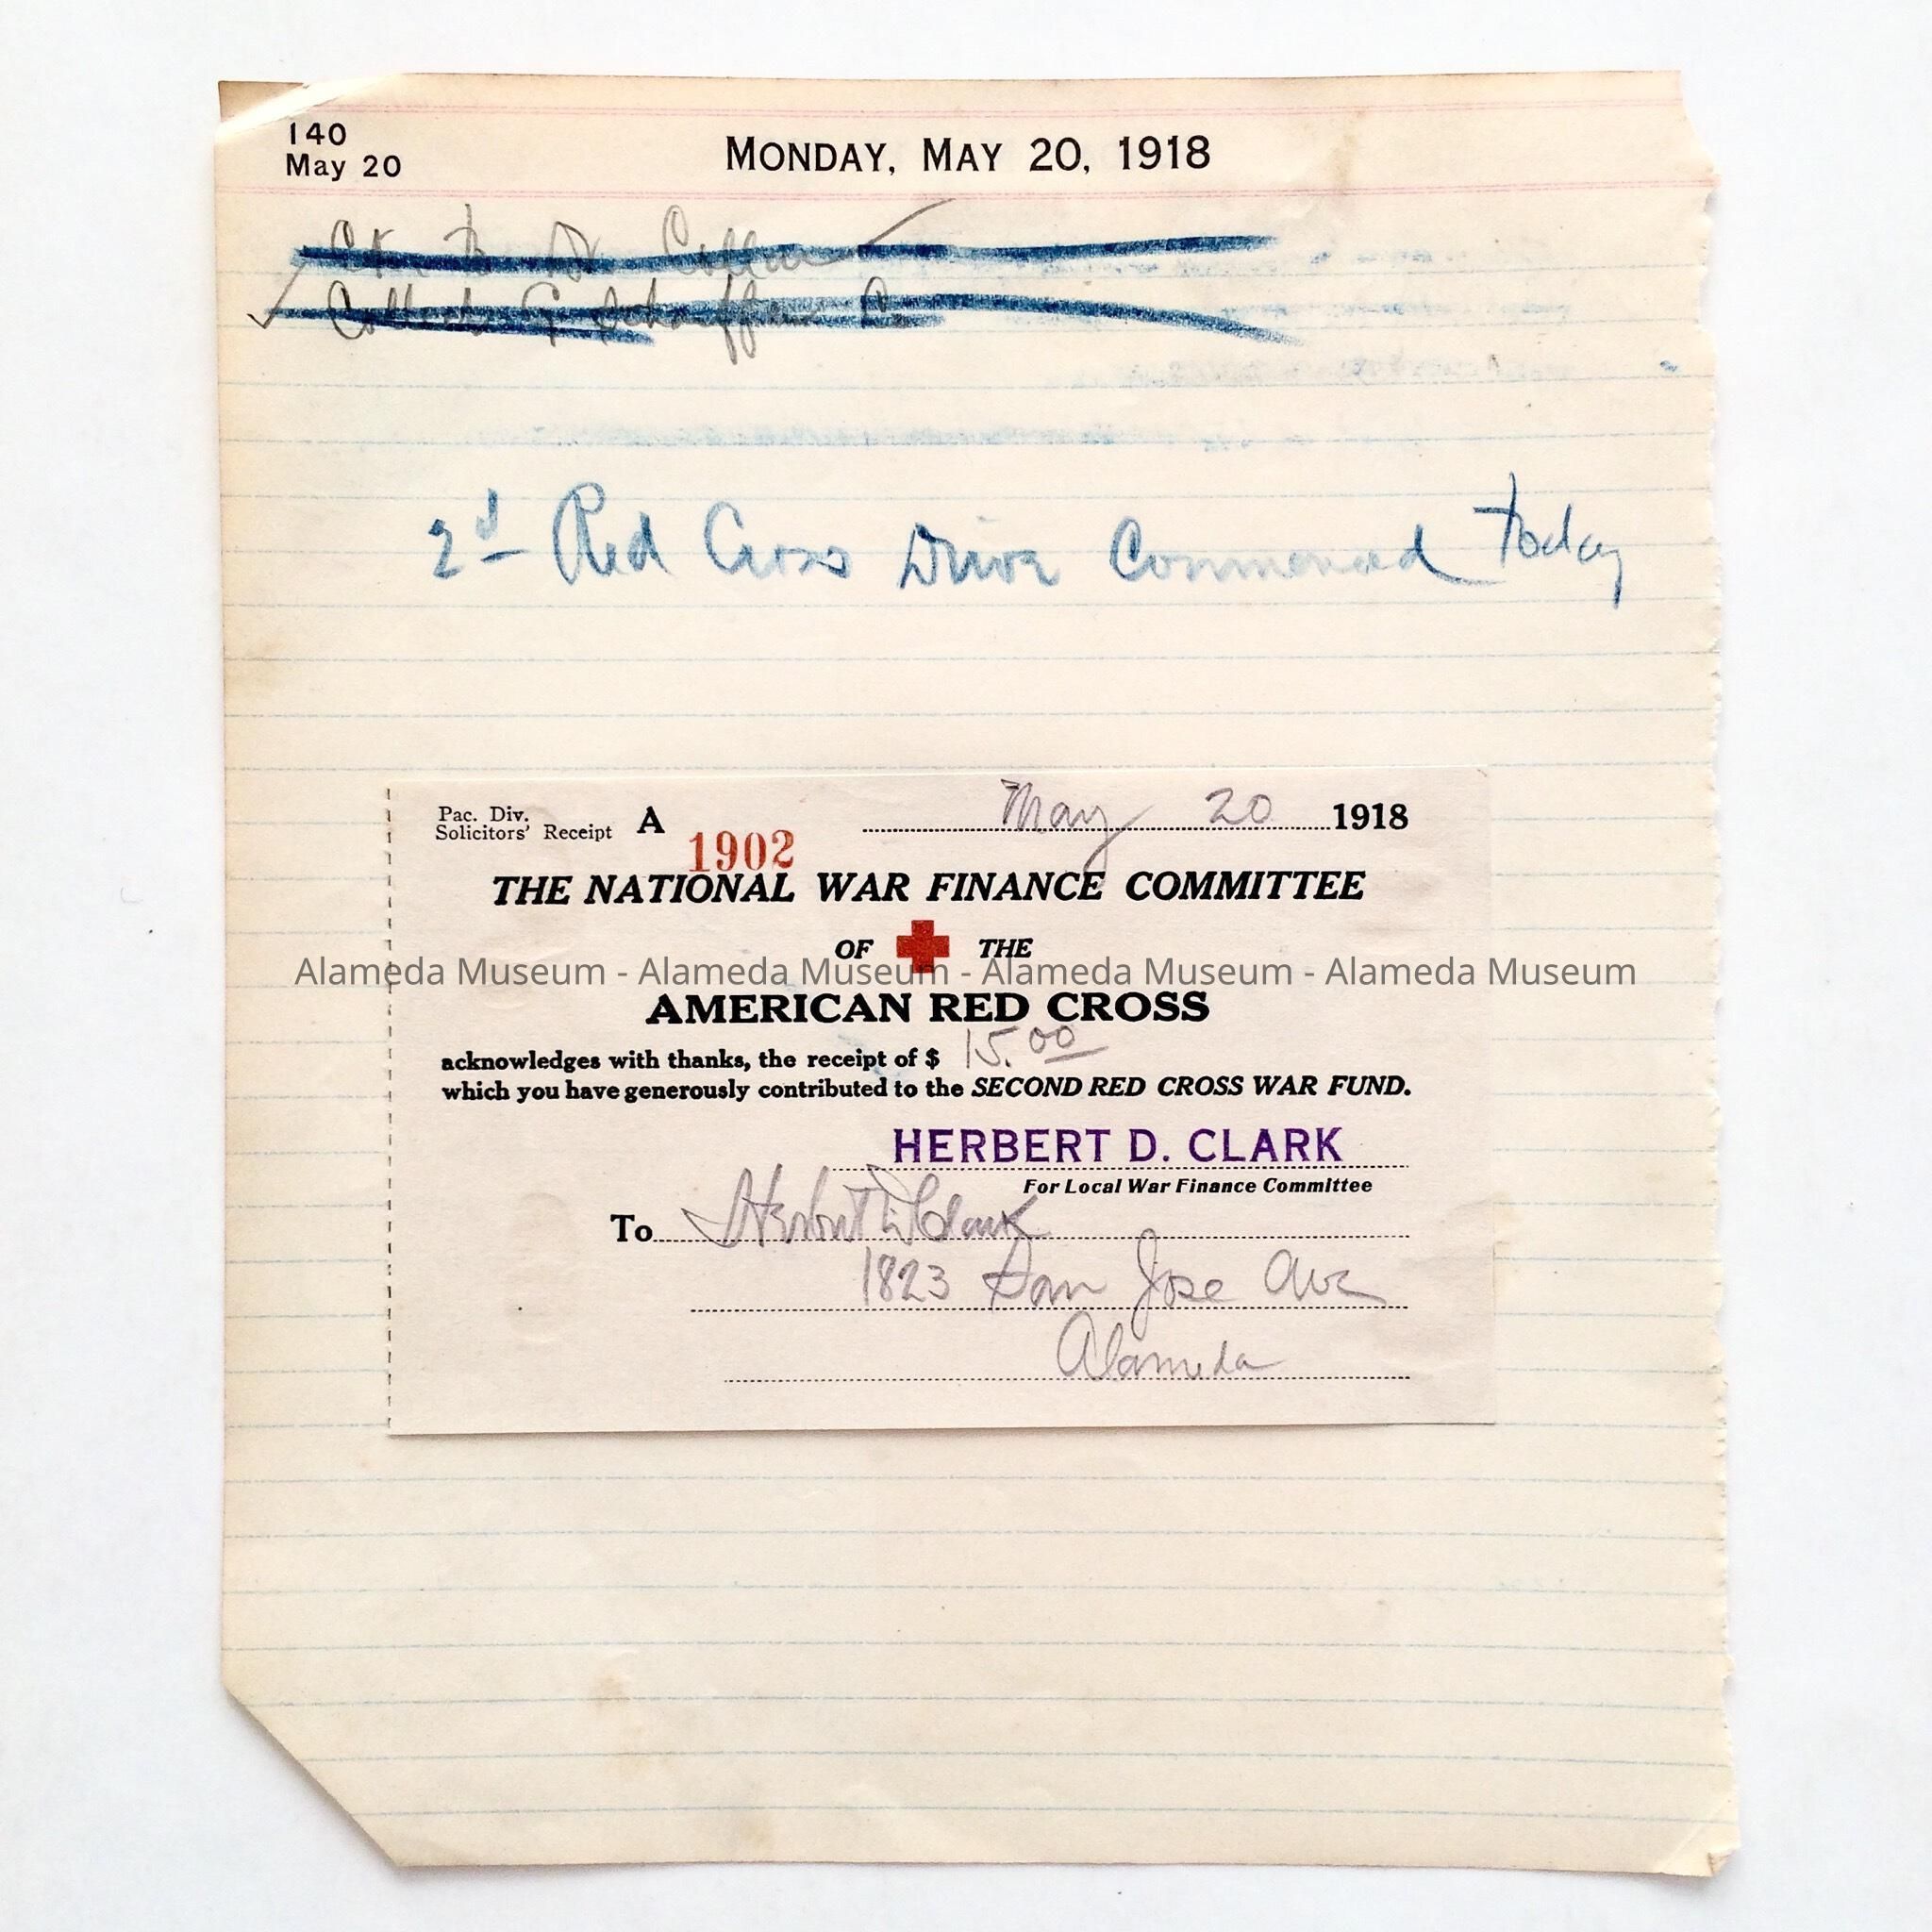 140
May 20
MONDAY, MAY 20, 1918
2d Red Cross Drive Commenced Today
Pac. Div.
Solicitors' Receipt A
May 20 1918
1902
THE NATIONAL WAR FINANCE COMMITTEE
OF THE
Alameda Museum - Alameda Museum - Alameda Museum - Alameda Museum
AMERICAN RED CROSS
acknowledges with thanks, the receipt of $ 15.00
which you have generously contributed to the SECOND RED CROSS WAR FUND.
HERBERT D. CLARK
For Local War Finance Committee
To Herbert D Clark
1823 San Jose Ave
Alameda